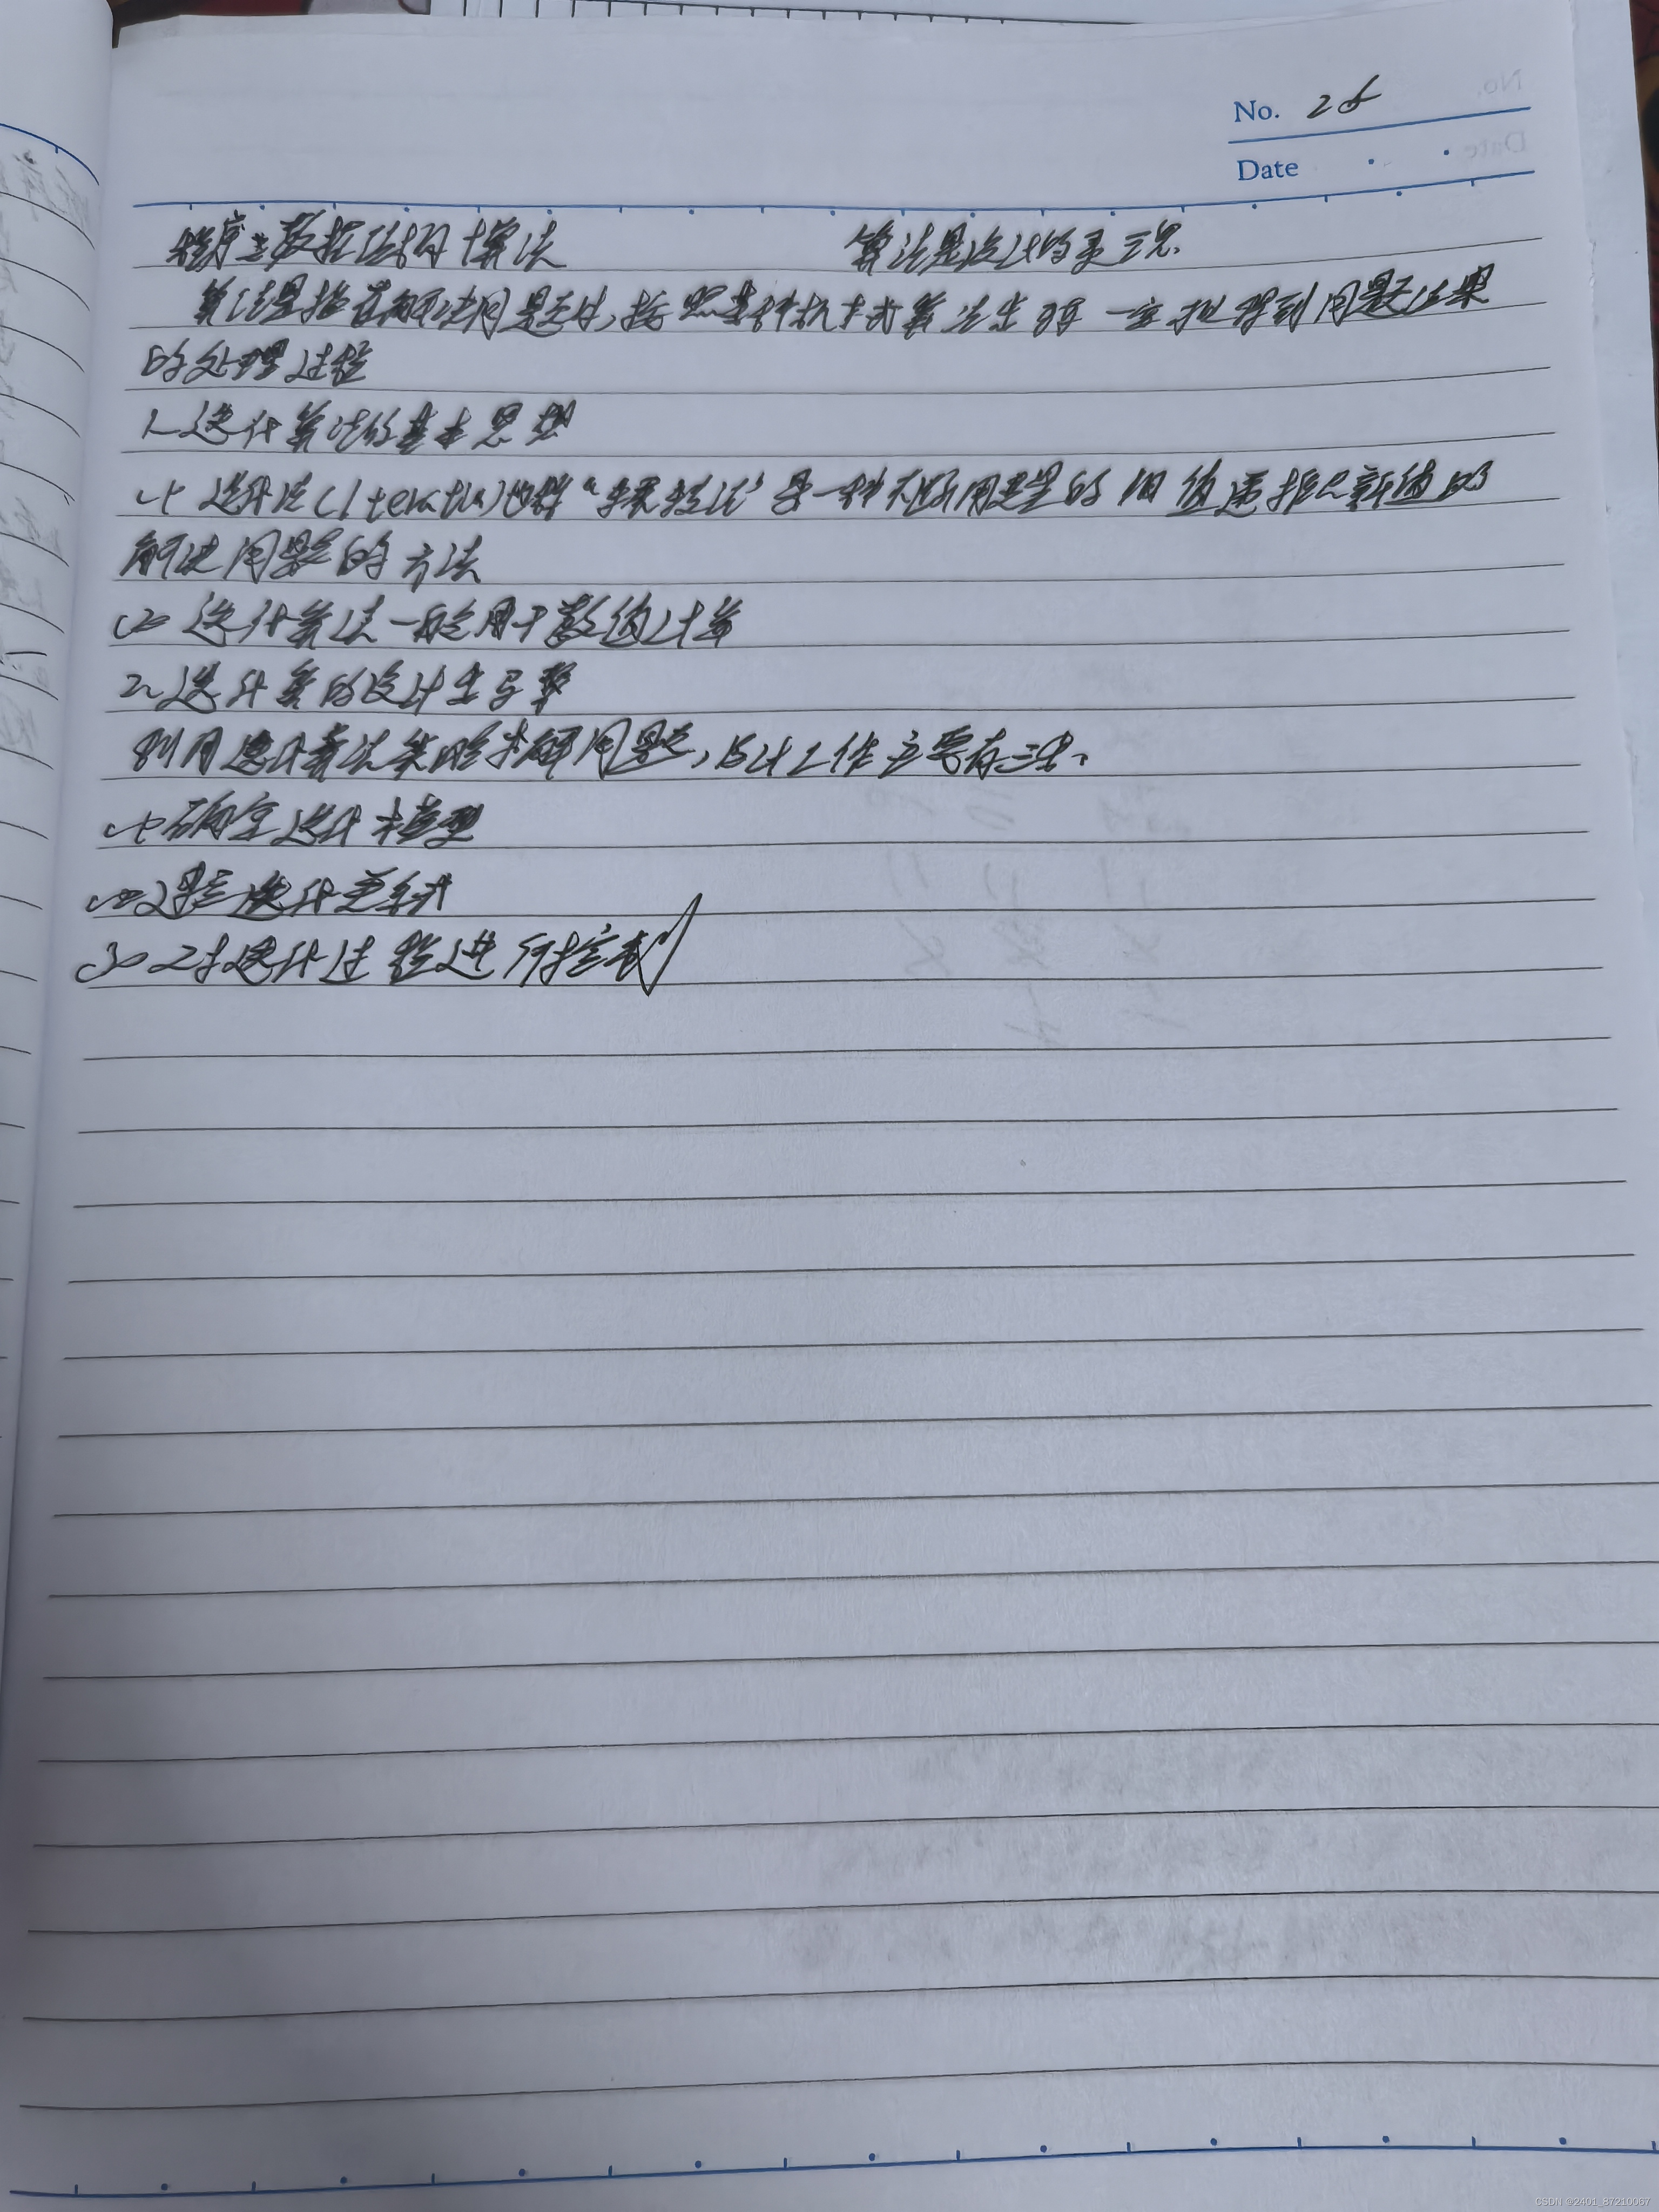 No. 26
Date
程序=数据结构+算法 算法是设计的灵魂.
算法是指在解决问题时,按照某种机 一定 得到问题结果
的处理过程
1、迭代算法的基本思想
(1) 迭代法(Iteration)也称“辗转法”是一种不断用变量的旧值递推出新值的
解决问题的方法
(2) 迭代算法一般用于数值计算
2、迭代算的设计
利用迭代算法策略求解问题,设计工作主要有三步、
(1)确定迭代模型
(2) 迭代关系
(3) 对迭代过程进行控制
CSDN @2401_87210067